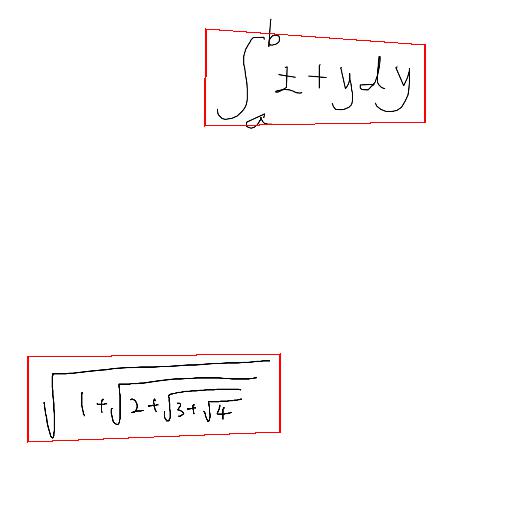 \int_{a}^{b} \pm + y dy
\sqrt{1+\sqrt{2+\sqrt{3+\sqrt{4}}}}